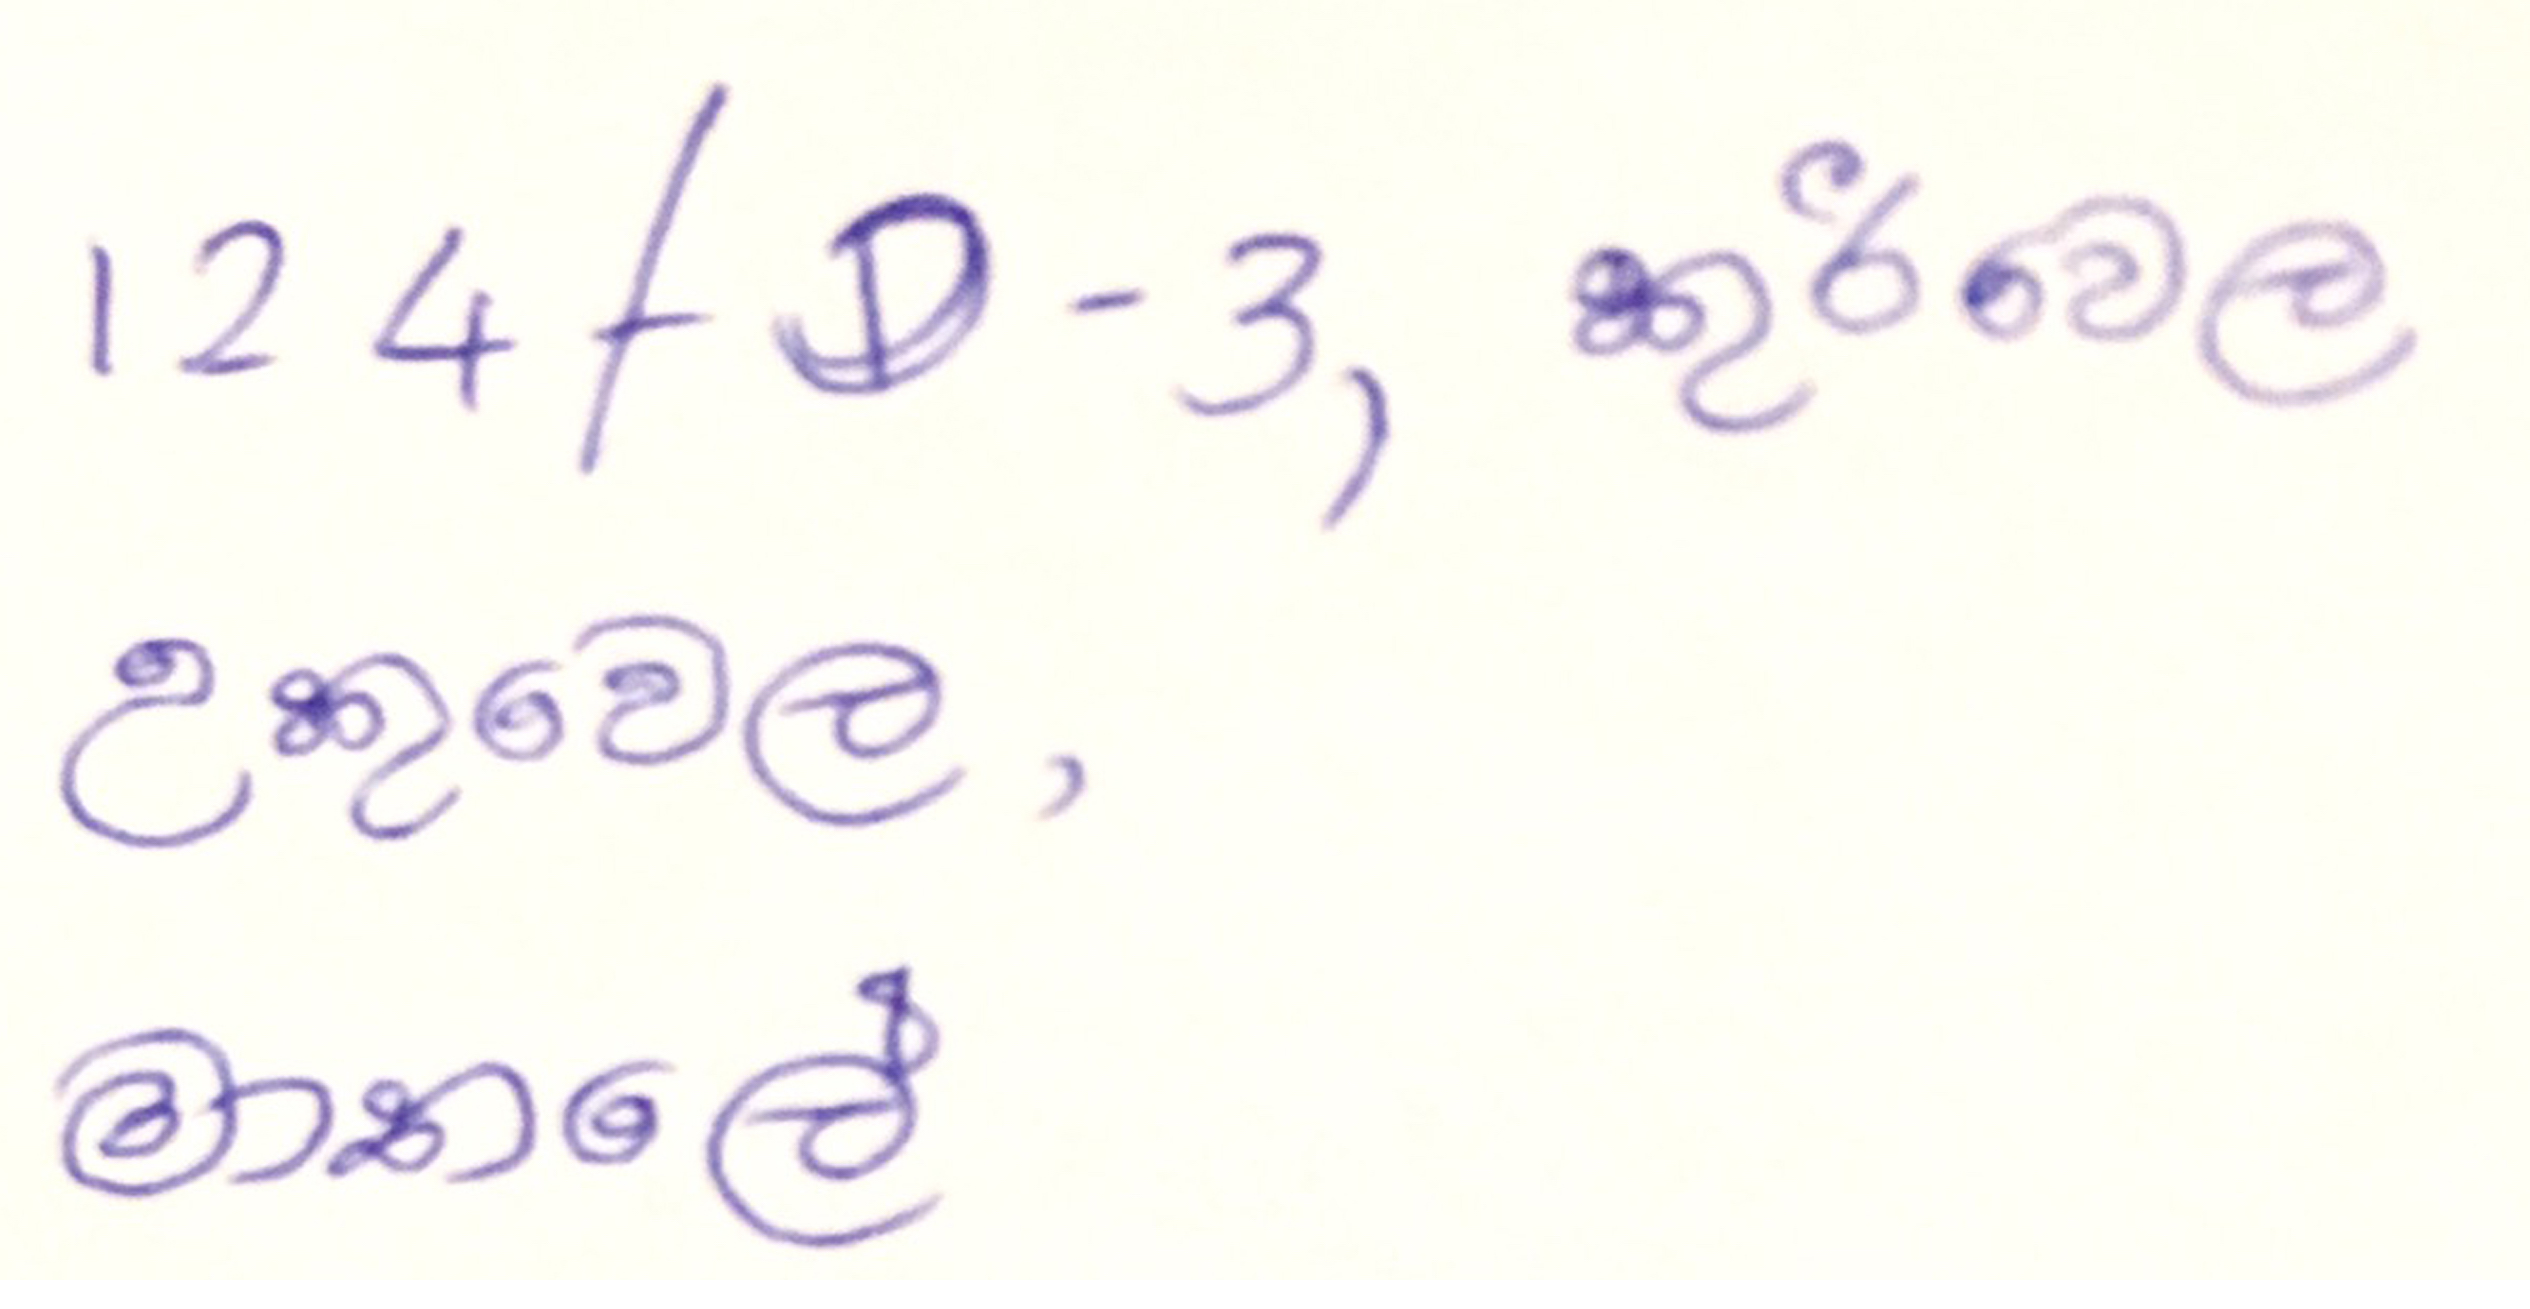 124/D-3, කුර්වෙල
උකුවෙල,
මාතලේ